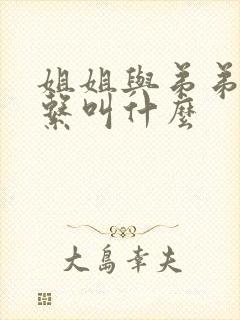 姐姐與弟弟
繫叫什麼
大島幸夫